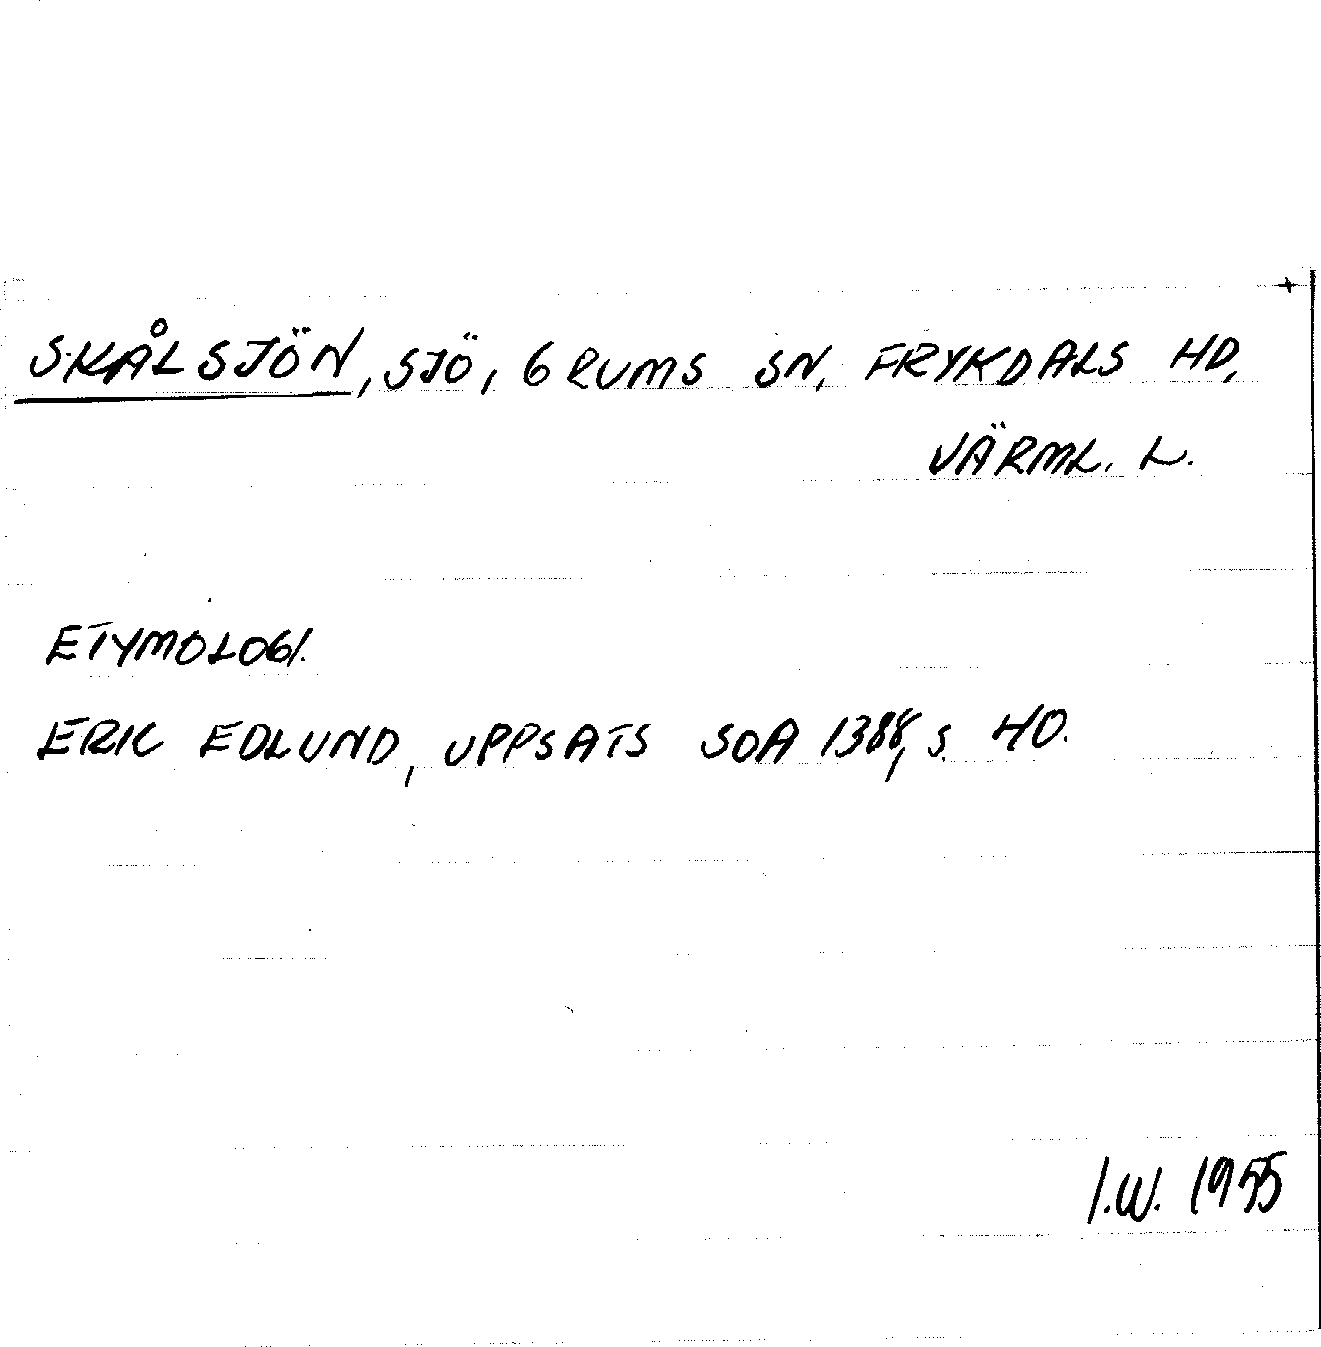 SKÅLSJÖN, SJÖ, GRUMS SN, FRYKDALS HD,
VÄRML. L.
ETYMOLOGI.
ERIC EDLUND, UPPSATS SOA 1388, S. 40.
I.W. 1955